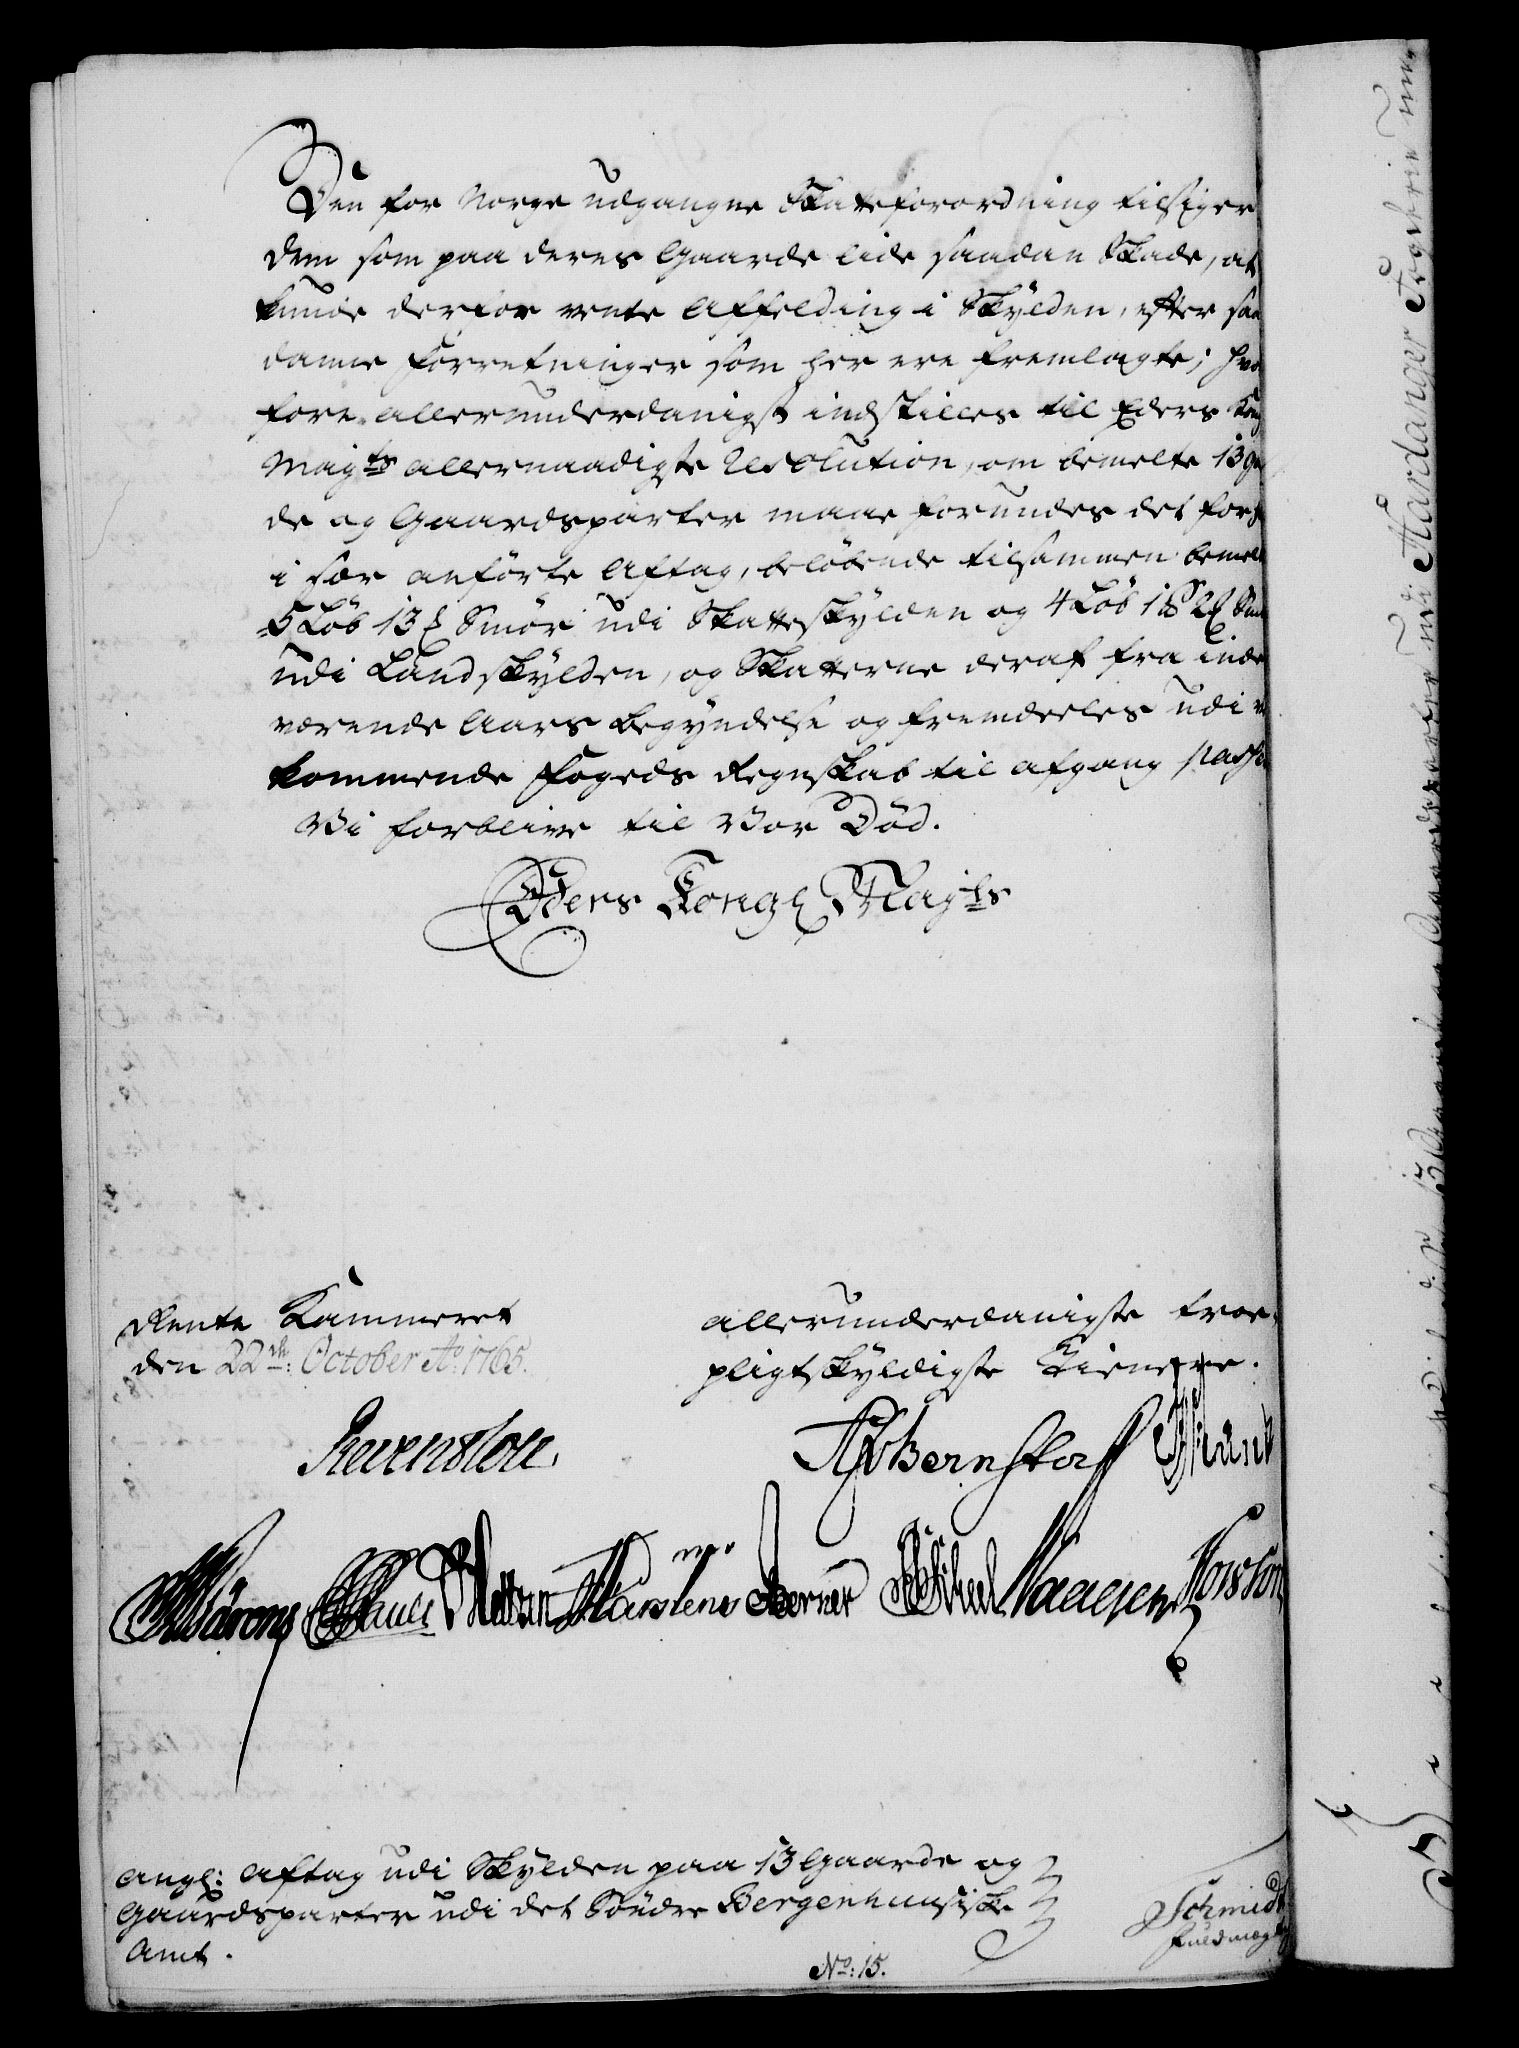 Den for Norge udgangne Skatteforordning tilsiger
dem som paa deres Gaarde lide saadan Skade, at
kunde derfor vente Affelding i Skylden, efter saa
danne Forretninger som her ere fremlagte; hvor
fore allerunderdanigst indstilles til Eders Kong
Mayts allernaadigste Resolution, om bemelte 13 Gaar
de og Gaardsparter maae forundes det forhen
i sær anførte Aftag, beløbende tilsammen bemelte
5 Løb 13 Smør udi Skatteskylden og 4 Løb
udi Landskylden, og Skatterne deraf fra inde
værende Aars Begyndelse og fremdeeles udi ved
kommende Fogeds Regnskab til afgang passere
Vi forblive til Vor Død.
Eders Kongl Mayts
Rente Kammeret
den 22de: October Ao: 1765.
allerunderdanigste troe
pligtskyldigste Tienere.
Reventlou.
Bernstorf
Pauli Martens Berner
Angl: Aftag udi Skylden paa 13 Gaarde og
Gaardsparter udi det Søndre Bergenhuusiske
Amt.
Schmidt
Fuldmægtig
No: 15.
13 Gaarde og Gaardsparter udi Hardanger Fogderie un